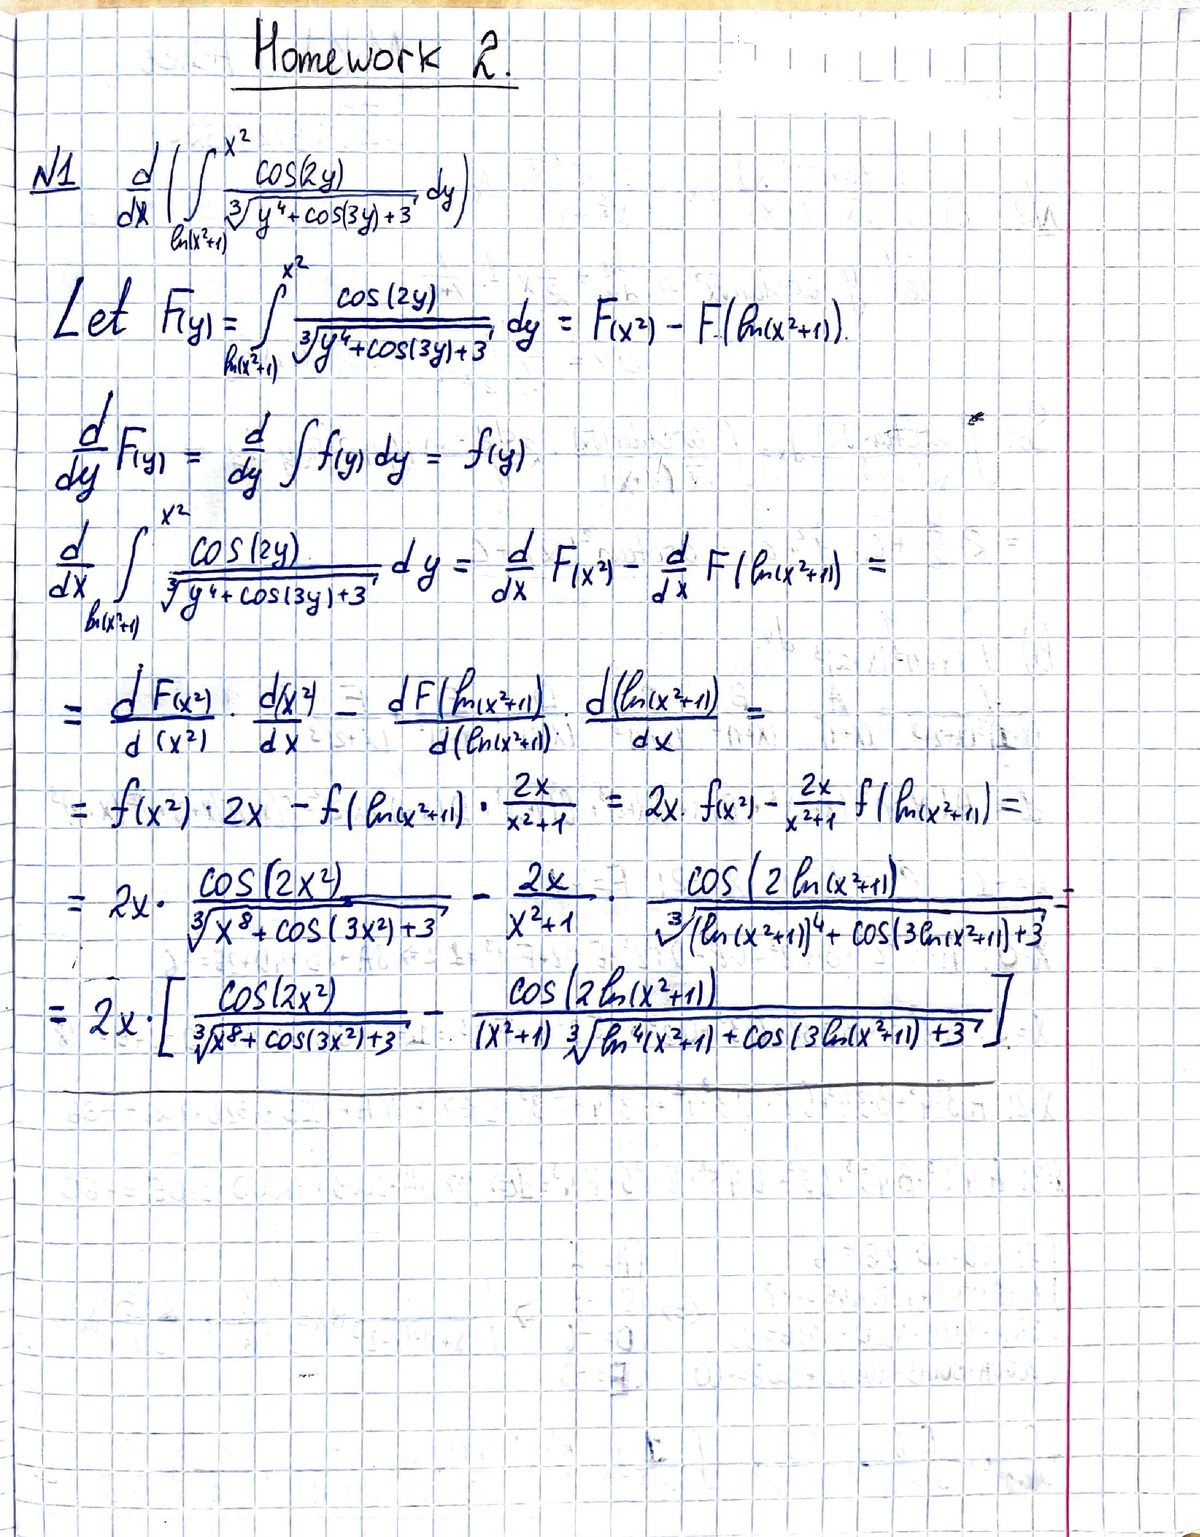 Homework 2.
N1 d/dx (∫_{ln(x²+1)}^{x²} cos(2y)/∛(y⁴+cos(3y)+3) dy)
Let F(y) = ∫_{ln(x²+1)}^{x²} cos(2y)/∛(y⁴+cos(3y)+3) dy = F(x²) - F(ln(x²+1)).
d/dy F(y) = d/dy ∫ f(y) dy = f(y)
d/dx ∫_{ln(x²+1)}^{x²} cos(2y)/∛(y⁴+cos(3y)+3) dy = d/dx F(x²) - d/dx F(ln(x²+1)) =
= dF(x²)/d(x²) · d(x²)/dx - dF(ln(x²+1))/d(ln(x²+1)) · d(ln(x²+1))/dx =
= f(x²) · 2x - f(ln(x²+1)) · 2x/(x²+1) = 2x · f(x²) - 2x/(x²+1) f(ln(x²+1)) =
= 2x · cos(2x²)/∛(x⁸+cos(3x²)+3) - 2x/(x²+1) · cos(2ln(x²+1))/∛((ln(x²+1))⁴+cos(3ln(x²+1))+3) =
= 2x · [cos(2x²)/∛(x⁸+cos(3x²)+3) - cos(2ln(x²+1))/((x²+1) ∛(ln⁴(x²+1)+cos(3ln(x²+1))+3))].